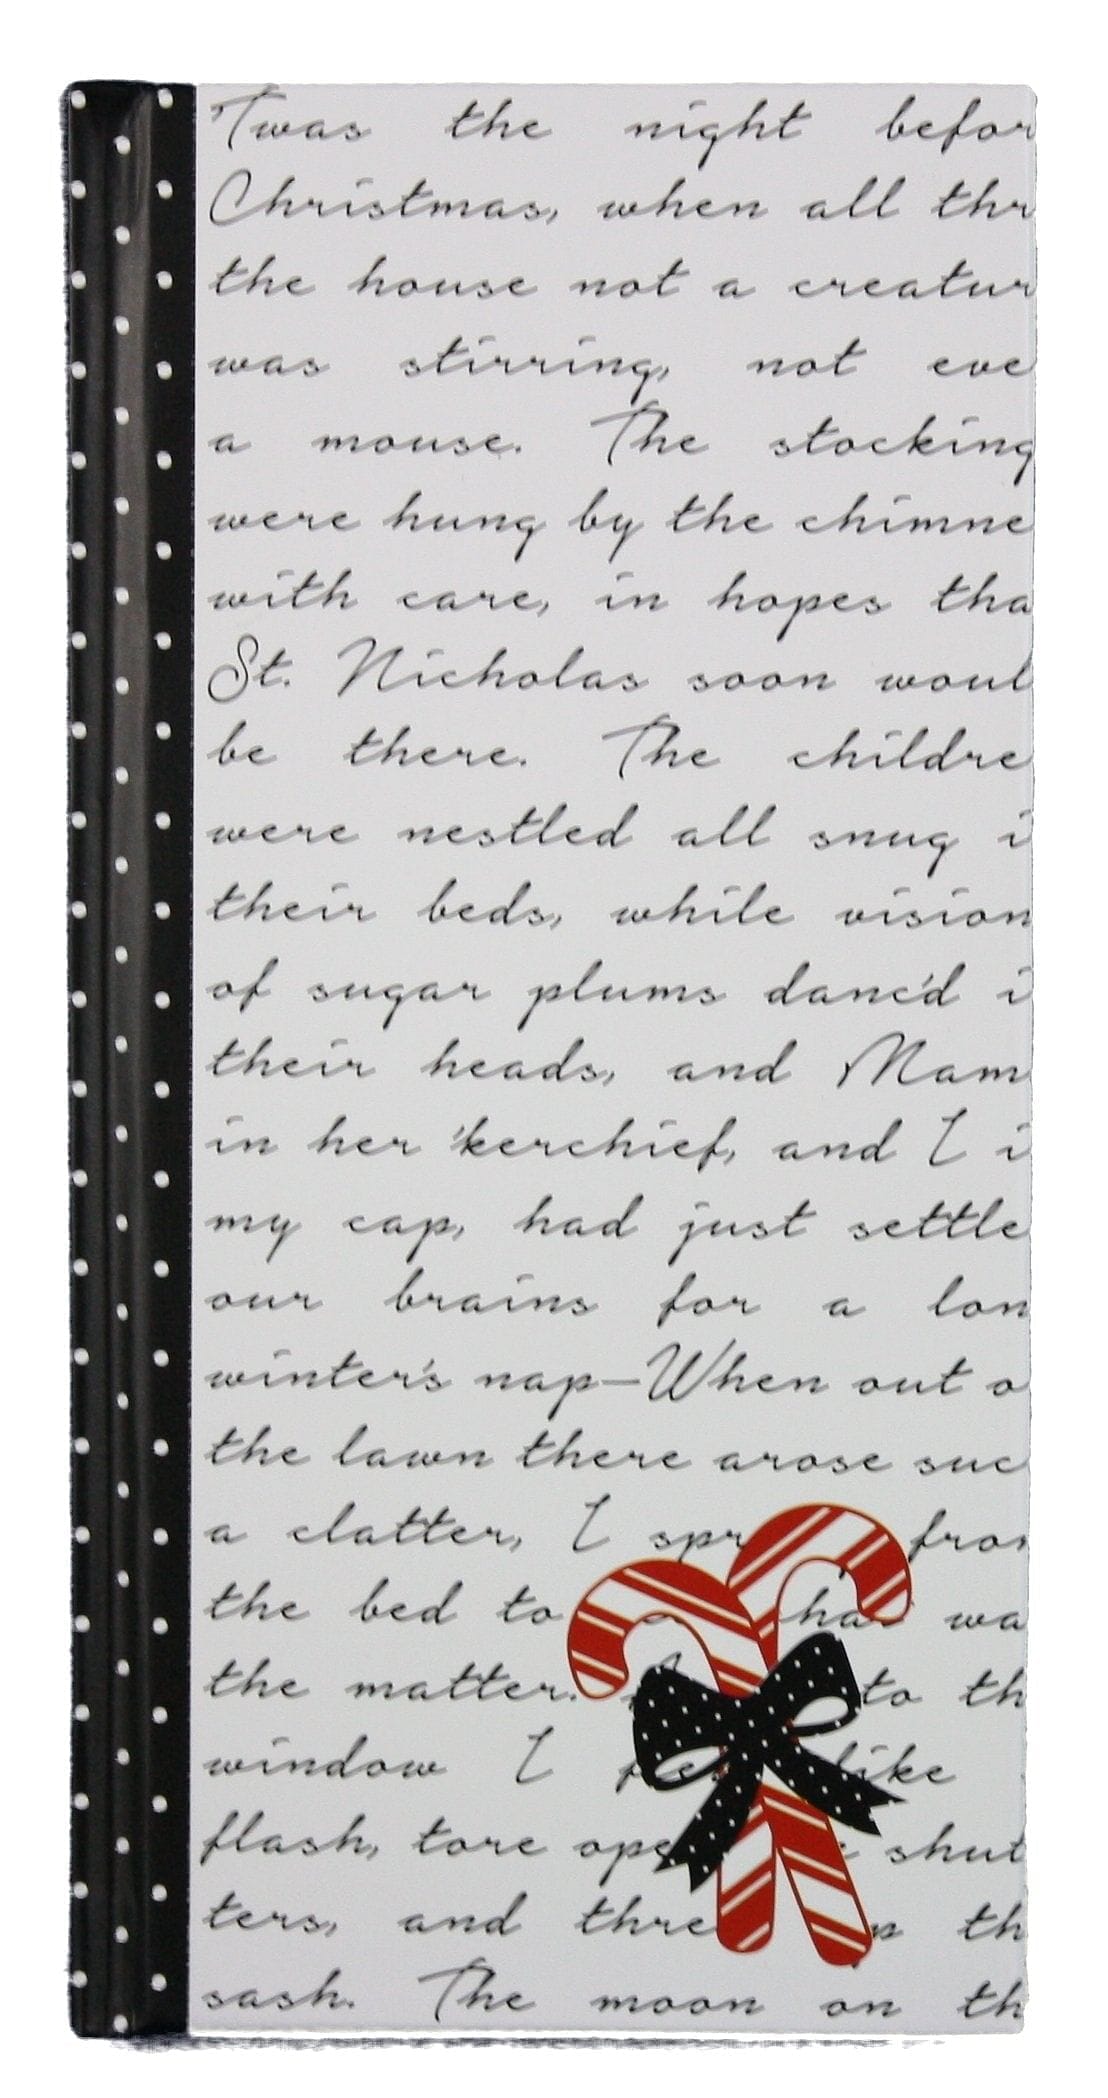 'Twas the night befor
Christmas, when all thr
the house not a creatur
was stirring, not eve
a mouse. The stocking
were hung by the chimne
with care, in hopes tha
St. Nicholas soon woul
be there. The childre
were nestled all snug i
their beds, while vision
of sugar plums danc'd i
their heads, and Mam
in her 'kerchief, and I i
my cap, had just settle
our brains for a lon
winter's nap—When out o
the lawn there arose suc
a clatter, I spr from
the bed to wa
the matter. to th
window I like
flash, tore ope shut
ters, and thre th
sash. The moon on th